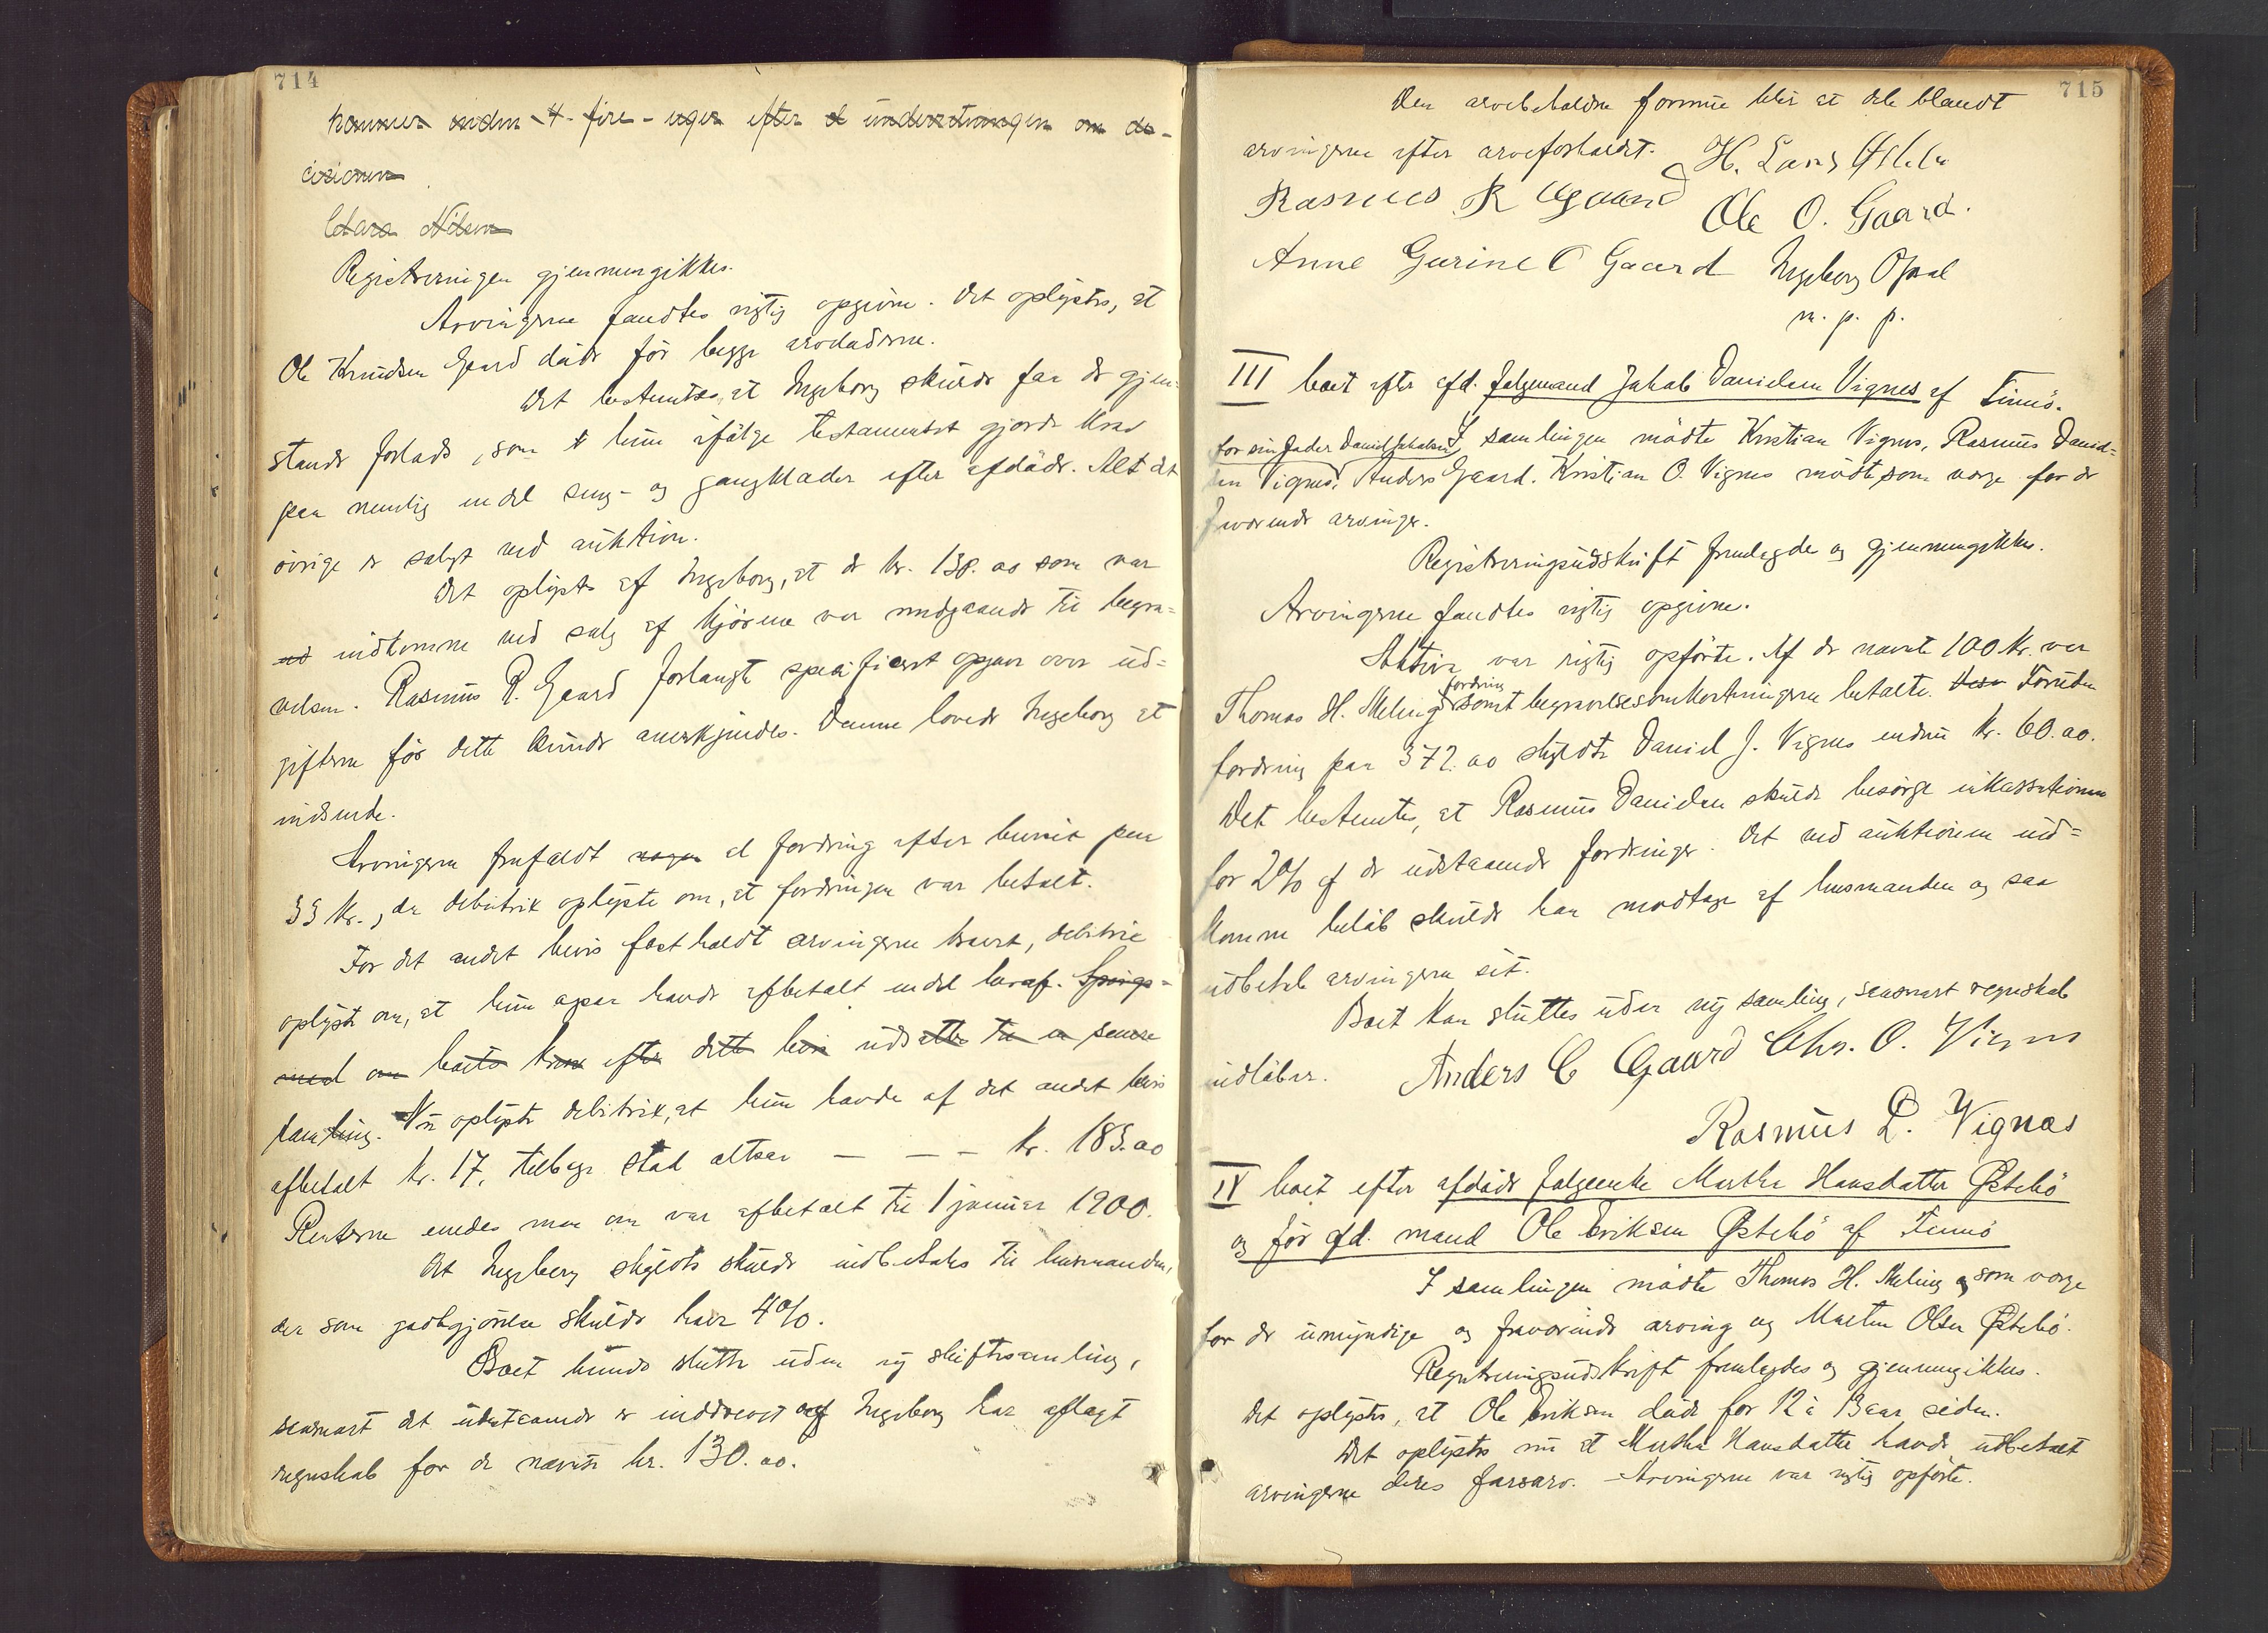 714
kommer inden 4 - fire - uger efter d underretningen om de-
cisionen
Clara Nilsen
Registreringen gjennemgikkes.
Arvingerne fandtes rigtig opgivne. Det oplystes, at
Ole Knudsen Gaard døde før begge arveladerne.
Det bestemtes, at Ingeborg skulde faa de gjen-
stande forlods, som hun ifølge testamentet gjorde krav
paa nemlig endel seng- og gangklæder efter afdøde. Alt det
øvrige er solgt ved auktion.
Det oplystes af Ingeborg, at de kr. 130.00 som var
indkomne ved salg af kjørene var medgaaende til begra-
velsen. Rasmus R. Gaard forlangte specificeret opgave over ud-
gifterne før dette kunde anerkjendes. Denne lovede Ingeborg at
indsende.
Arvingerne frafaldt nogen al fordring efter beviset paa
33 kr., da debitrix oplyste om, at fordringen var betalt.
For det andet bevis fastholdt arvingerne kravet, debitrix
oplyste om, at hun ogsaa havde afbetalt endel heraf. Spørgs-
maal om boets krav efter dette bevis udsættes til en senere
samling. Nu oplyste debitrix, at hun havde af det andet bevis
afbetalt kr. 17, tilbage stod altsaa — — — kr. 183.00
Renterne enedes man om var afbetalt til 1 januar 1900.
At Ingeborg skyldte skulde indbetales til lensmanden,
der som godtgjørelse skulde have 4%.
Boet kunde slutte uden ny skiftesamling,
saasnart det udestaaende er inddrevet og Ingeborg har aflagt
regnskab for de nævnte kr. 130.00.
715
Den arvebeholdne formue blir at dele blandt
arvingerne efter arveforholdet. H. Lans
Rasmus R Gaard Ole O. Gaard.
Anne Gurine O Gaard Ingeborg Opsal
m. p. p.
III boet efter afd. følgemand Jakob Danielsen Vignes af Finnø.
for sin fader Daniel Jakobsen
I samlingen mødte Kristian Vignes, Rasmus Daniel-
sen Vignes, Anders Gaard. Kristian O. Vignes mødte som verge for de
fraværende arvinger.
Registreringsudskrift fremlagdes og gjennemgikkes.
Arvingerne fandtes rigtig opgivne.
Aktiva var rigtig opførte. Af de nævnte 100 kr. var
fordring
Thomas H. Meling samt begravelsesomkostningerne betalte. Foruden
fordring paa 372.00 skyldte Daniel J. Vignes endnu kr. 60.00.
Det bestemtes, at Rasmus Danielsen skulde besørge inkassationen
for 2% af de udestaaende fordringer. Det ved auktionen ind-
komne beløb skulde han modtage af lensmanden og saa
udbetale arvingerne sit.
Boet kan sluttes uden ny samling, saasnart regnskab
indløber. Anders C Gaard Chr. O. Vignes
Rasmus D. Vignæs
IV boet efter afdøde følgeenke Martha Hansdatter Østebø
og før afd. mand Ole Eriksen Østebø af Finnø
I samlingen mødte Thomas H. Meling og som verge
for de umyndige og fraværende arving og Martin Olsen Østebø.
Registreringsudskrift fremlagdes og gjennemgikkes.
Det oplystes, at Ole Eriksen døde for 12 à 13 aar siden.
Det oplystes nu at Martha Hansdatter havde udbetalt
arvingerne deres farsarv. Arvingerne var rigtig opførte.